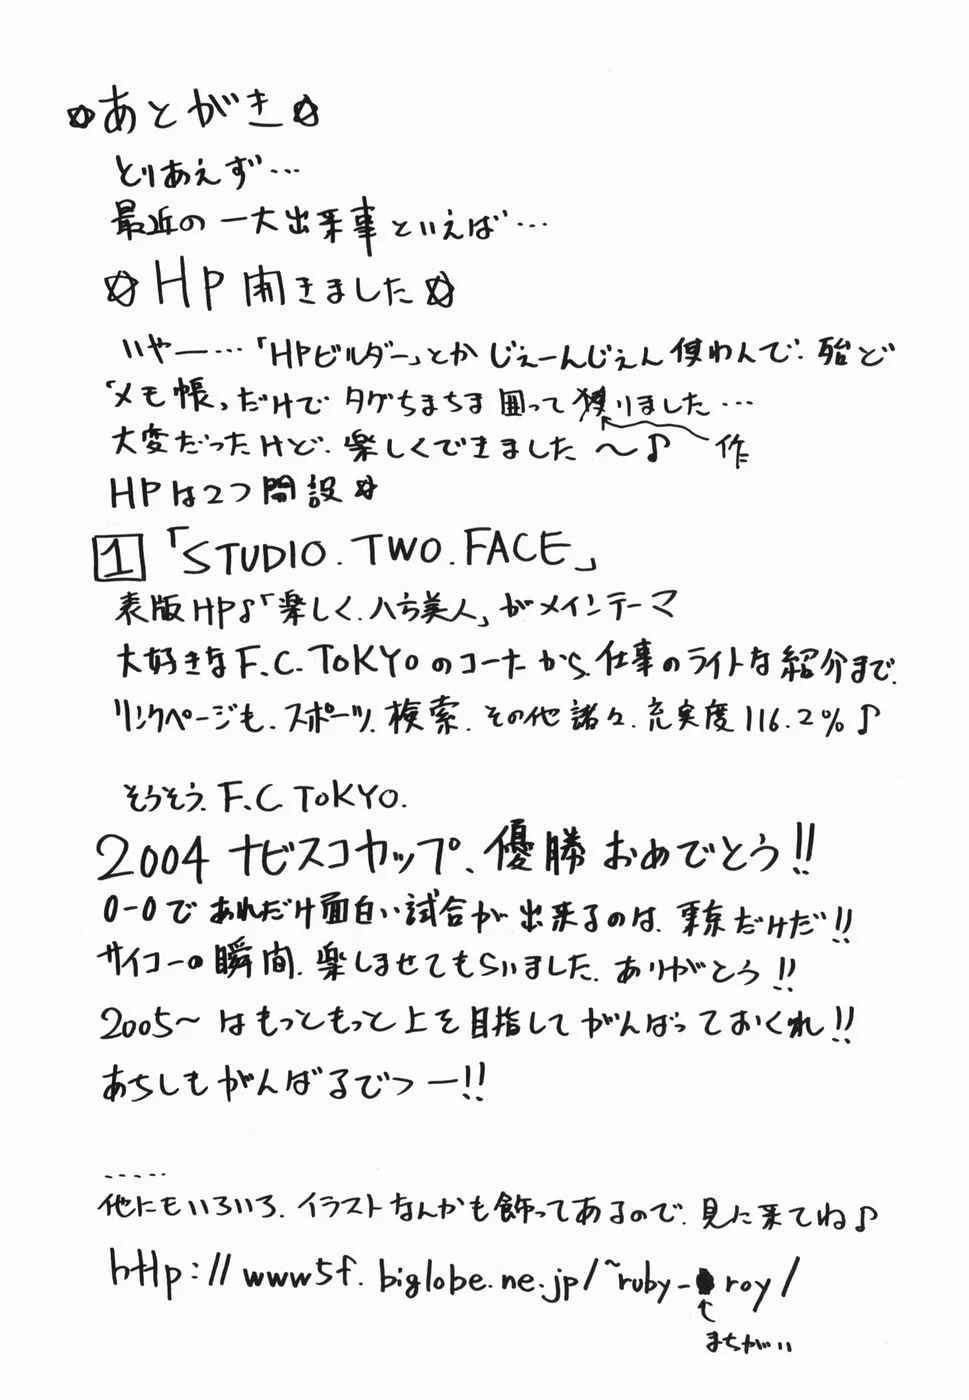 ☆あとがき☆
とりあえず…
最近の一大出来事といえば…
☆HP開きました☆
いやー…「HPビルダー」とかじぇーんじぇん使わんで、殆ど
「メモ帳」だけでタグちまちま囲って獲りました…
大変だったけど、楽しくできました〜♪ 作
HPは2つ開設☆
1 「STUDIO.TWO.FACE」
表版HP♪「楽しく、八方美人」がメインテーマ
大好きなF.C.TOKYOのコーナから、仕事のライトな紹介まで、
リンクページも、スポーツ、検索、その他諸々、充実度116.2%♪
そうそう、F.C TOKYO.
2004 ナビスコカップ、優勝おめでとう!!
0-0であれだけ面白い試合が出来るのは、東京だけだ!!
サイコーの瞬間、楽しませてもらいました、ありがとう!!
2005〜はもっともっと上を目指してがんばっておくれ!!
あちしもがんばるでつー!!
‥‥‥
他にもいろいろ、イラストなんかも飾ってあるので、見に来てね♪
http://www5f.biglobe.ne.jp/~ruby-roy/
まちがい